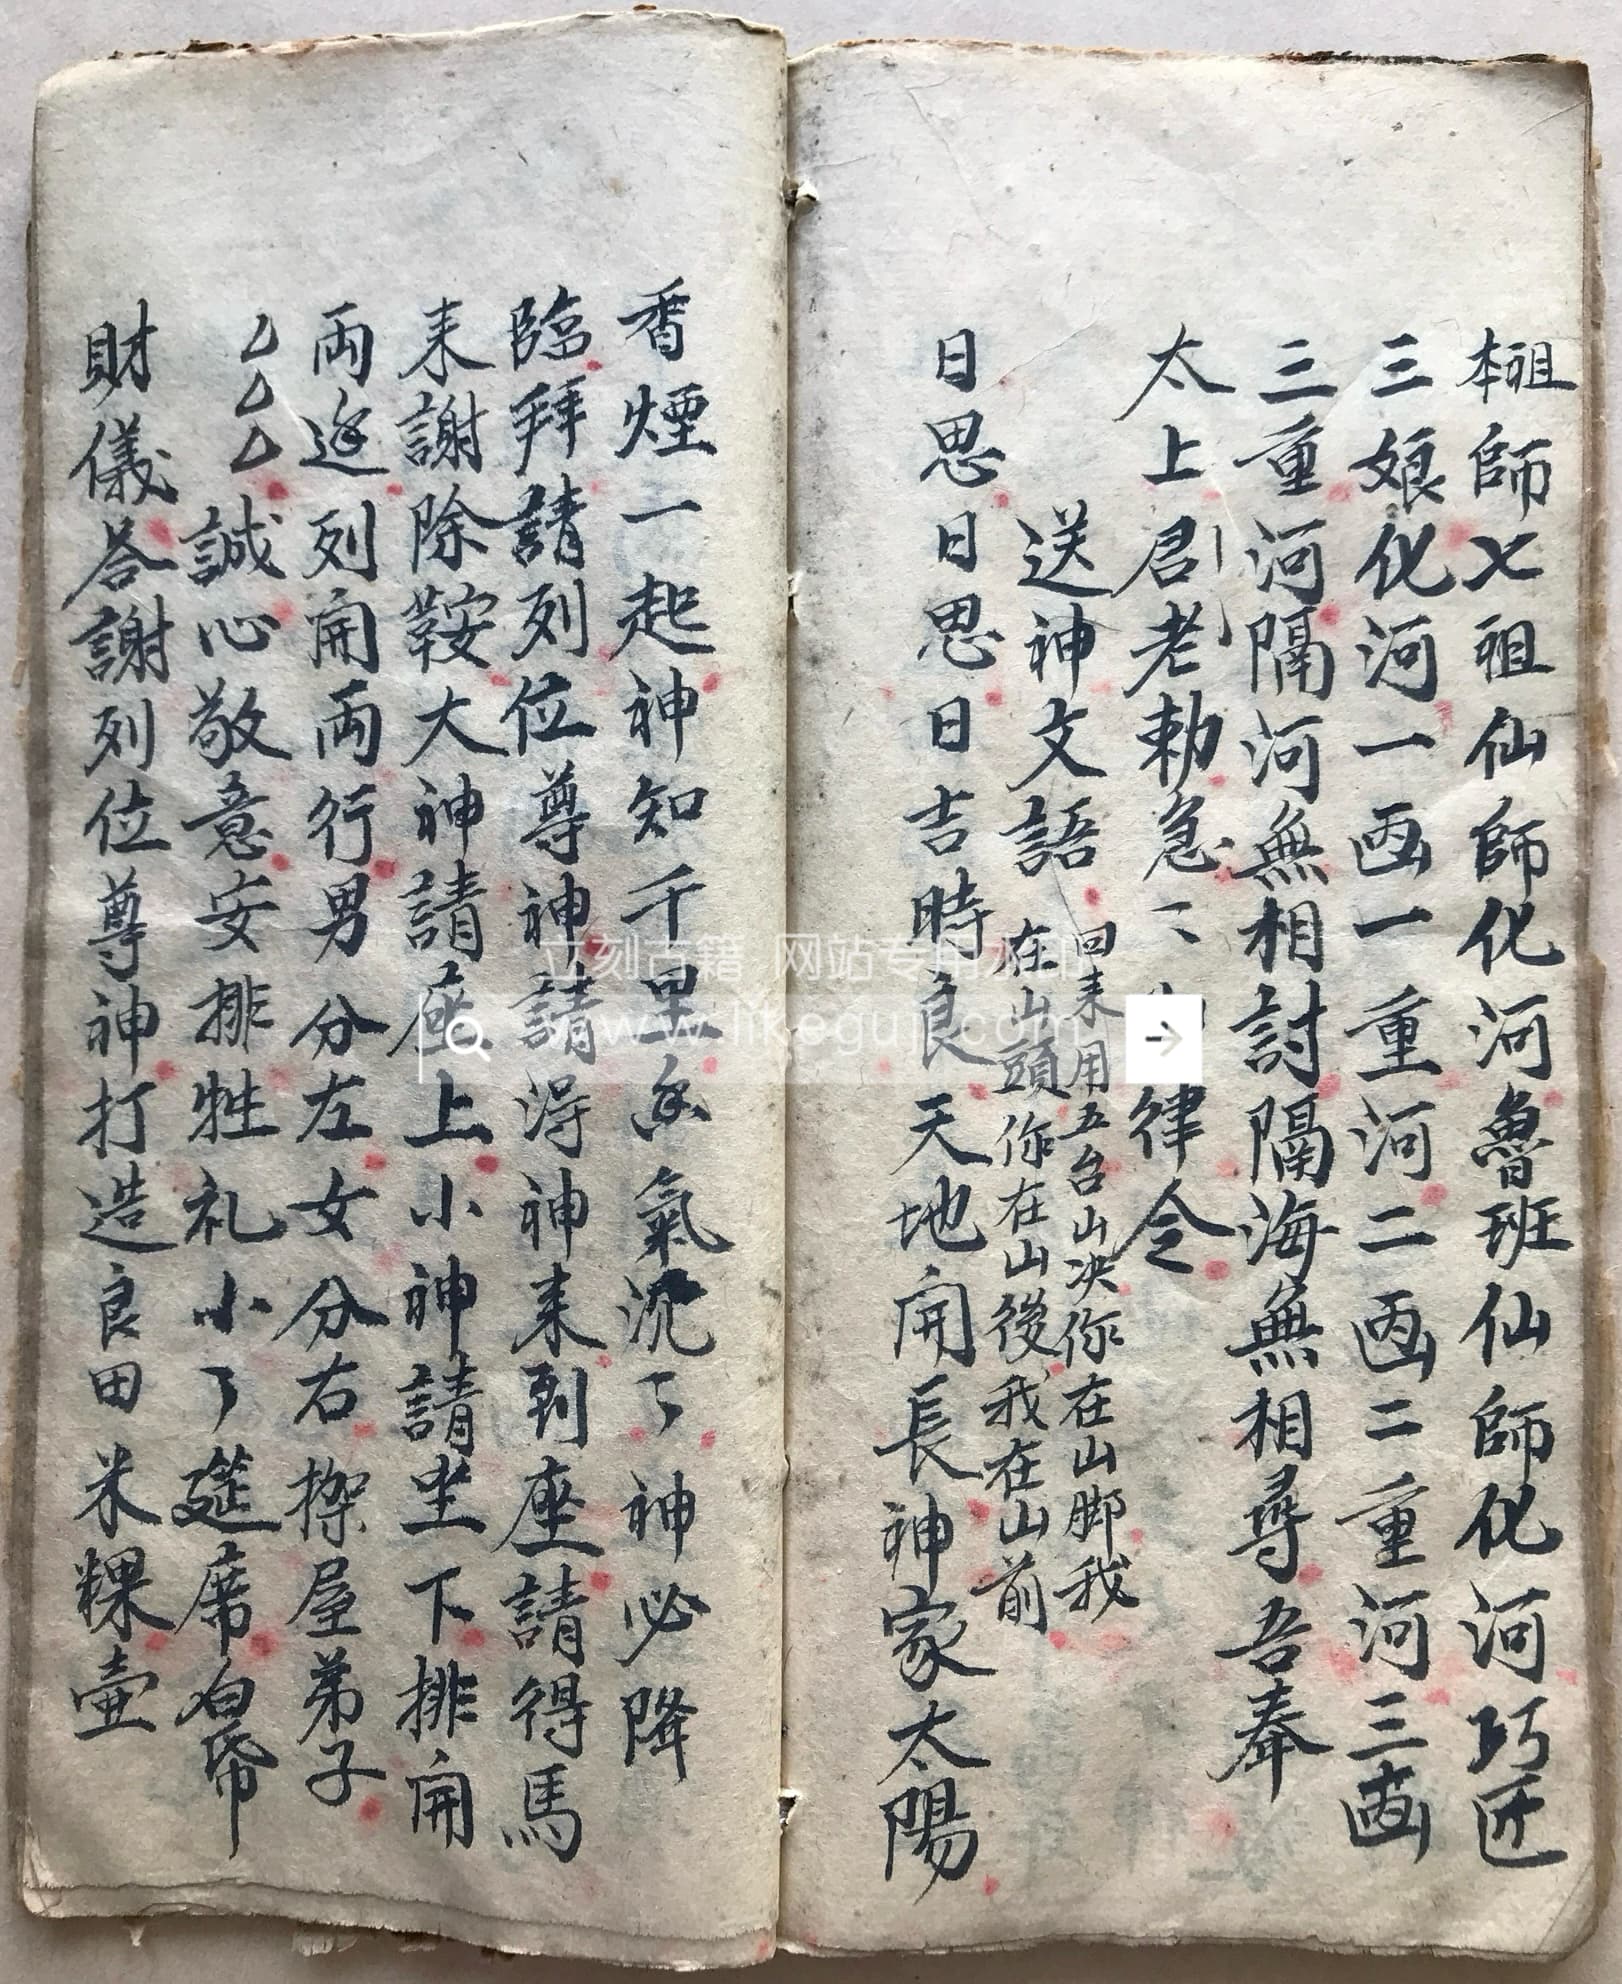 本祖師七祖仙師化河魯班仙師化河巧匠
三娘化河一画一重河二画二重河三画
三重河隔河無相討隔海無相尋吾奉
太上君老勅急〻律令
送神文語
回来用五台山决你在山脚我
在山頭你在山後我在山前
日思日思日吉時良天地開長神家太陽
香煙一起神知千里氣沉了神必降
臨拜請列位尊神請得神来到座請得馬
来謝除鞍大神請座上小神請坐下排開
両边列開両行男分左女分右搩屋弟子
厶厶厶誠心敬意安排牲礼小了筵席白帋
財儀答謝列位尊神打造良田米粿壷
立刻古籍 网站专用水印
www.likeguji.com